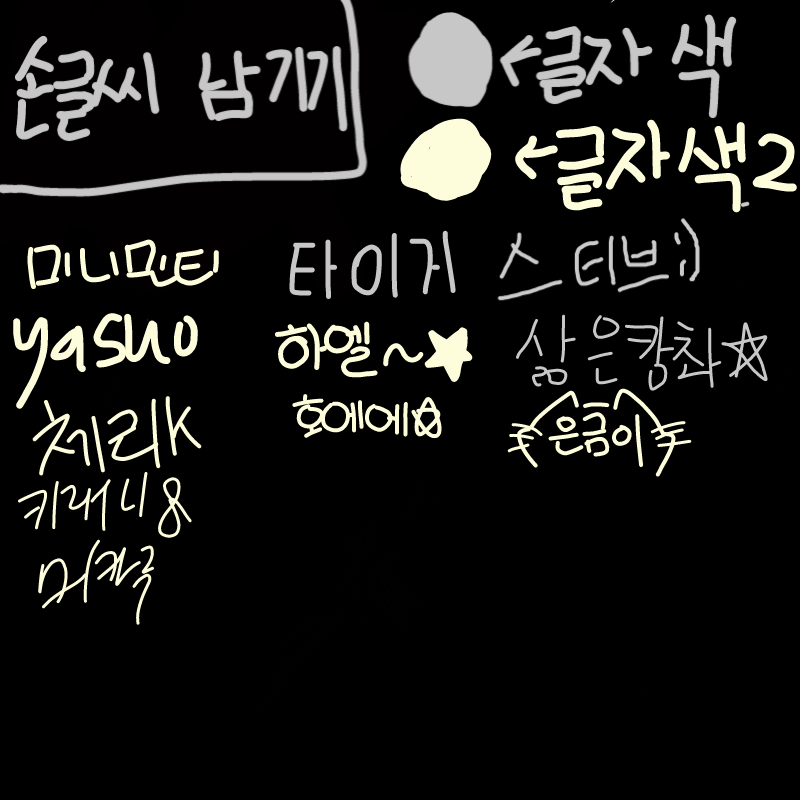 손글씨 남기기
←글자 색
←글자 색2
미니민티
타이거
스티브;)
yasuo
하엘~★
삶은캉촤☆
체리K
호에에☆
은금이
키래니8